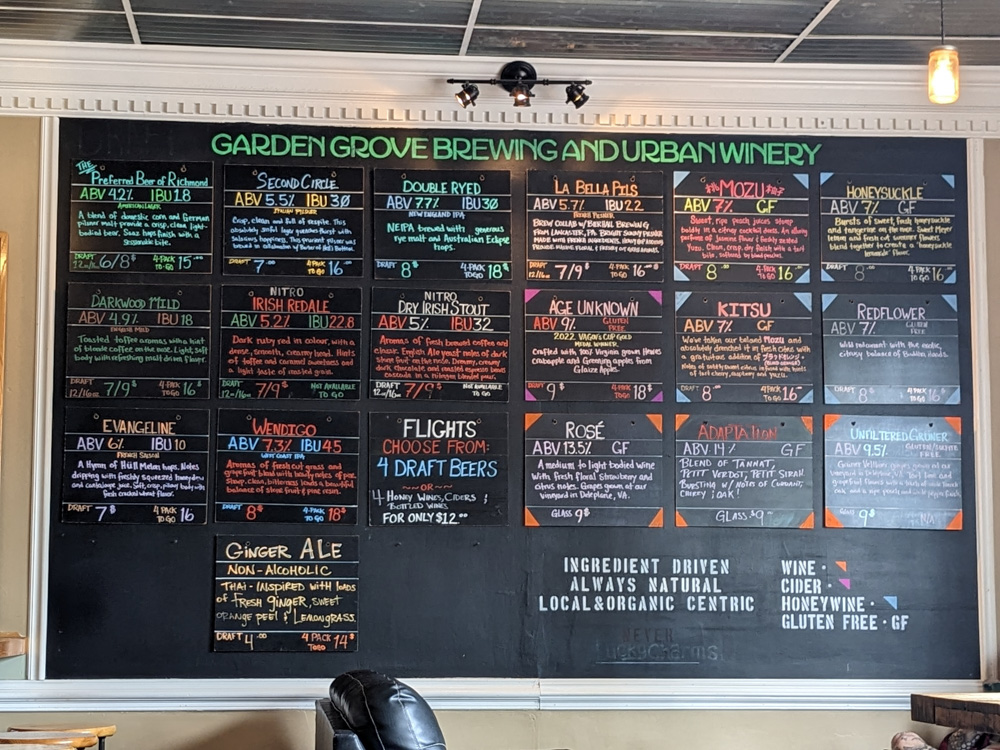 GARDEN GROVE BREWING AND URBAN WINERY
THE
Preferred Beer of Richmond
ABV 4.2% IBU 18
AMERICAN LAGER
A blend of domestic corn and German
pilsner malt provide a crisp, clean light-
bodied beer. Saaz hops finish with a
Sessionable bite.
DRAFT 12oz/16oz 6/8$ 4-PACK TO GO 15.00
SECOND CIRCLE
ABV 5.5% IBU 30
ITALIAN PILSNER
Crisp, clean and full of
DRAFT 7.00 4-PACK TO GO 16
DOUBLE RYED
ABV 7.7% IBU 30
NEW ENGLAND IPA
NEIPA brewed with generous
rye malt and Australian Eclipse
hops.
DRAFT 8$ 4-PACK TO GO 18$
LA BELLA PILS
ABV 5.7% IBU 22
BREW COLLAB W/
FROM LANCASTER, PA.
DRAFT 12/16oz 7/9$ 4-PACK TO GO 16
MOZU
ABV 7% GF
Sweet, ripe peach juices steep
boldly in a citrusy cocktail dress. An alloy
perfume of Jasmine flower & freshly zested
Yuzu. Clean, crisp, dry finish with a tart
bite, softened by blood peaches.
DRAFT 8.00 4-PACK TO GO 16
HONEYSUCKLE
ABV 7% GF
Bursts of sweet, fresh honeysuckle
and tangerine on the nose. Sweet Meyer
lemon and fresh cut summer flowers
blend together to create a "honeysuckle
lemonade" flavor.
DRAFT 8 4-PACK TO GO 16
DARKWOOD MILD
ABV 4.9% IBU 18
ENGLISH MILD
Toasted toffee aromas with a hint
of blonde coffee on the nose. Light, soft
body with refreshing malt driven flavors.
DRAFT 12/16oz 7/9$ 4-PACK TO GO 16$
NITRO
IRISH RED ALE
ABV 5.2% IBU 22.8
Dark ruby red in colour, with a
dense, smooth, creamy head. Hints
of toffee and caramel sweetness and
a light taste of roasted grain.
DRAFT 7/9$ NOT AVAILABLE TO GO
NITRO
DRY IRISH STOUT
ABV 5% IBU 32
Aromas of fresh brewed coffee and
classic English Ale yeast notes of dark
stone fruit on the nose. Dreamy, creamy
dark chocolate and roasted espresso beans
cascade in a nitrogen blended pour.
DRAFT 12/16oz 7/9$ NOT AVAILABLE TO GO
AGE UNKNOWN
ABV 9% GLUTEN FREE
2022 VAGOV CUP GOLD
MEDAL WINNER.
Crafted with 100% Virginia grown flowers
crabapple and Grimes apples from
Glaize Apples.
DRAFT 9$ 4-PACK TO GO 18$
KITSU
ABV 7% GF
We've taken our beloved Mozu and
absolutely drenched it in fresh cider with
a gratuitous addition of
of tart cherry, raspberry and yuzu.
DRAFT 8.00 4-PACK TO GO 16
REDFLOWER
ABV 7% GLUTEN FREE
Wild rosemont with the exotic,
citrusy balance of Buddha's Hands.
DRAFT 8 4-PACK TO GO 16
EVANGELINE
ABV 6% IBU 10
FRENCH SAISON
A Hymn of Hüll Melon hops. Notes
dripping with freshly squeezed honeydew
and cantaloupe juice. Soft, crisp, pillowy body with
fresh cracked wheat flavor.
DRAFT 7$ 4-PACK TO GO 16
WENDIGO
ABV 7.3% IBU 45
WEST COAST IPA
Aromas of fresh cut grass and
grapefruit blend with heady notes of pine.
Sharp, clean, bitterness leads a beautiful
balance of stone fruit & pine resin.
DRAFT 8$ 4-PACK TO GO 18$
FLIGHTS
CHOOSE FROM:
4 DRAFT BEERS
~OR~
4 HONEY WINES, CIDERS &
BOTTLED WINES
FOR ONLY $12.00
ROSÉ
ABV 13.5% GF
A medium to light bodied wine
with fresh floral strawberry and
citrus notes. Grapes grown at our
vineyard in Dateplane, VA.
GLASS 9$
ADAPTATION
ABV 14% GF
BLEND OF TANNAT,
PETIT VERDOT, PETIT SIRAH.
BURSTING W/ NOTES OF CURRANT,
CHERRY & OAK!
GLASS $9
UNFILTERED GRUNER
ABV 9.5% GLUTEN/SULFITE FREE
Gruner Veltliner grapes grown at our
GLASS 9$ N/A
GINGER ALE
NON-ALCOHOLIC
THAI-INSPIRED WITH LOADS
OF FRESH GINGER, SWEET
ORANGE PEEL & LEMONGRASS.
DRAFT 4.00 4 PACK TO GO 14$
INGREDIENT DRIVEN
ALWAYS NATURAL
LOCAL & ORGANIC CENTRIC
NEVER
LuckyCharms
WINE -
CIDER -
HONEYWINE -
GLUTEN FREE - GF